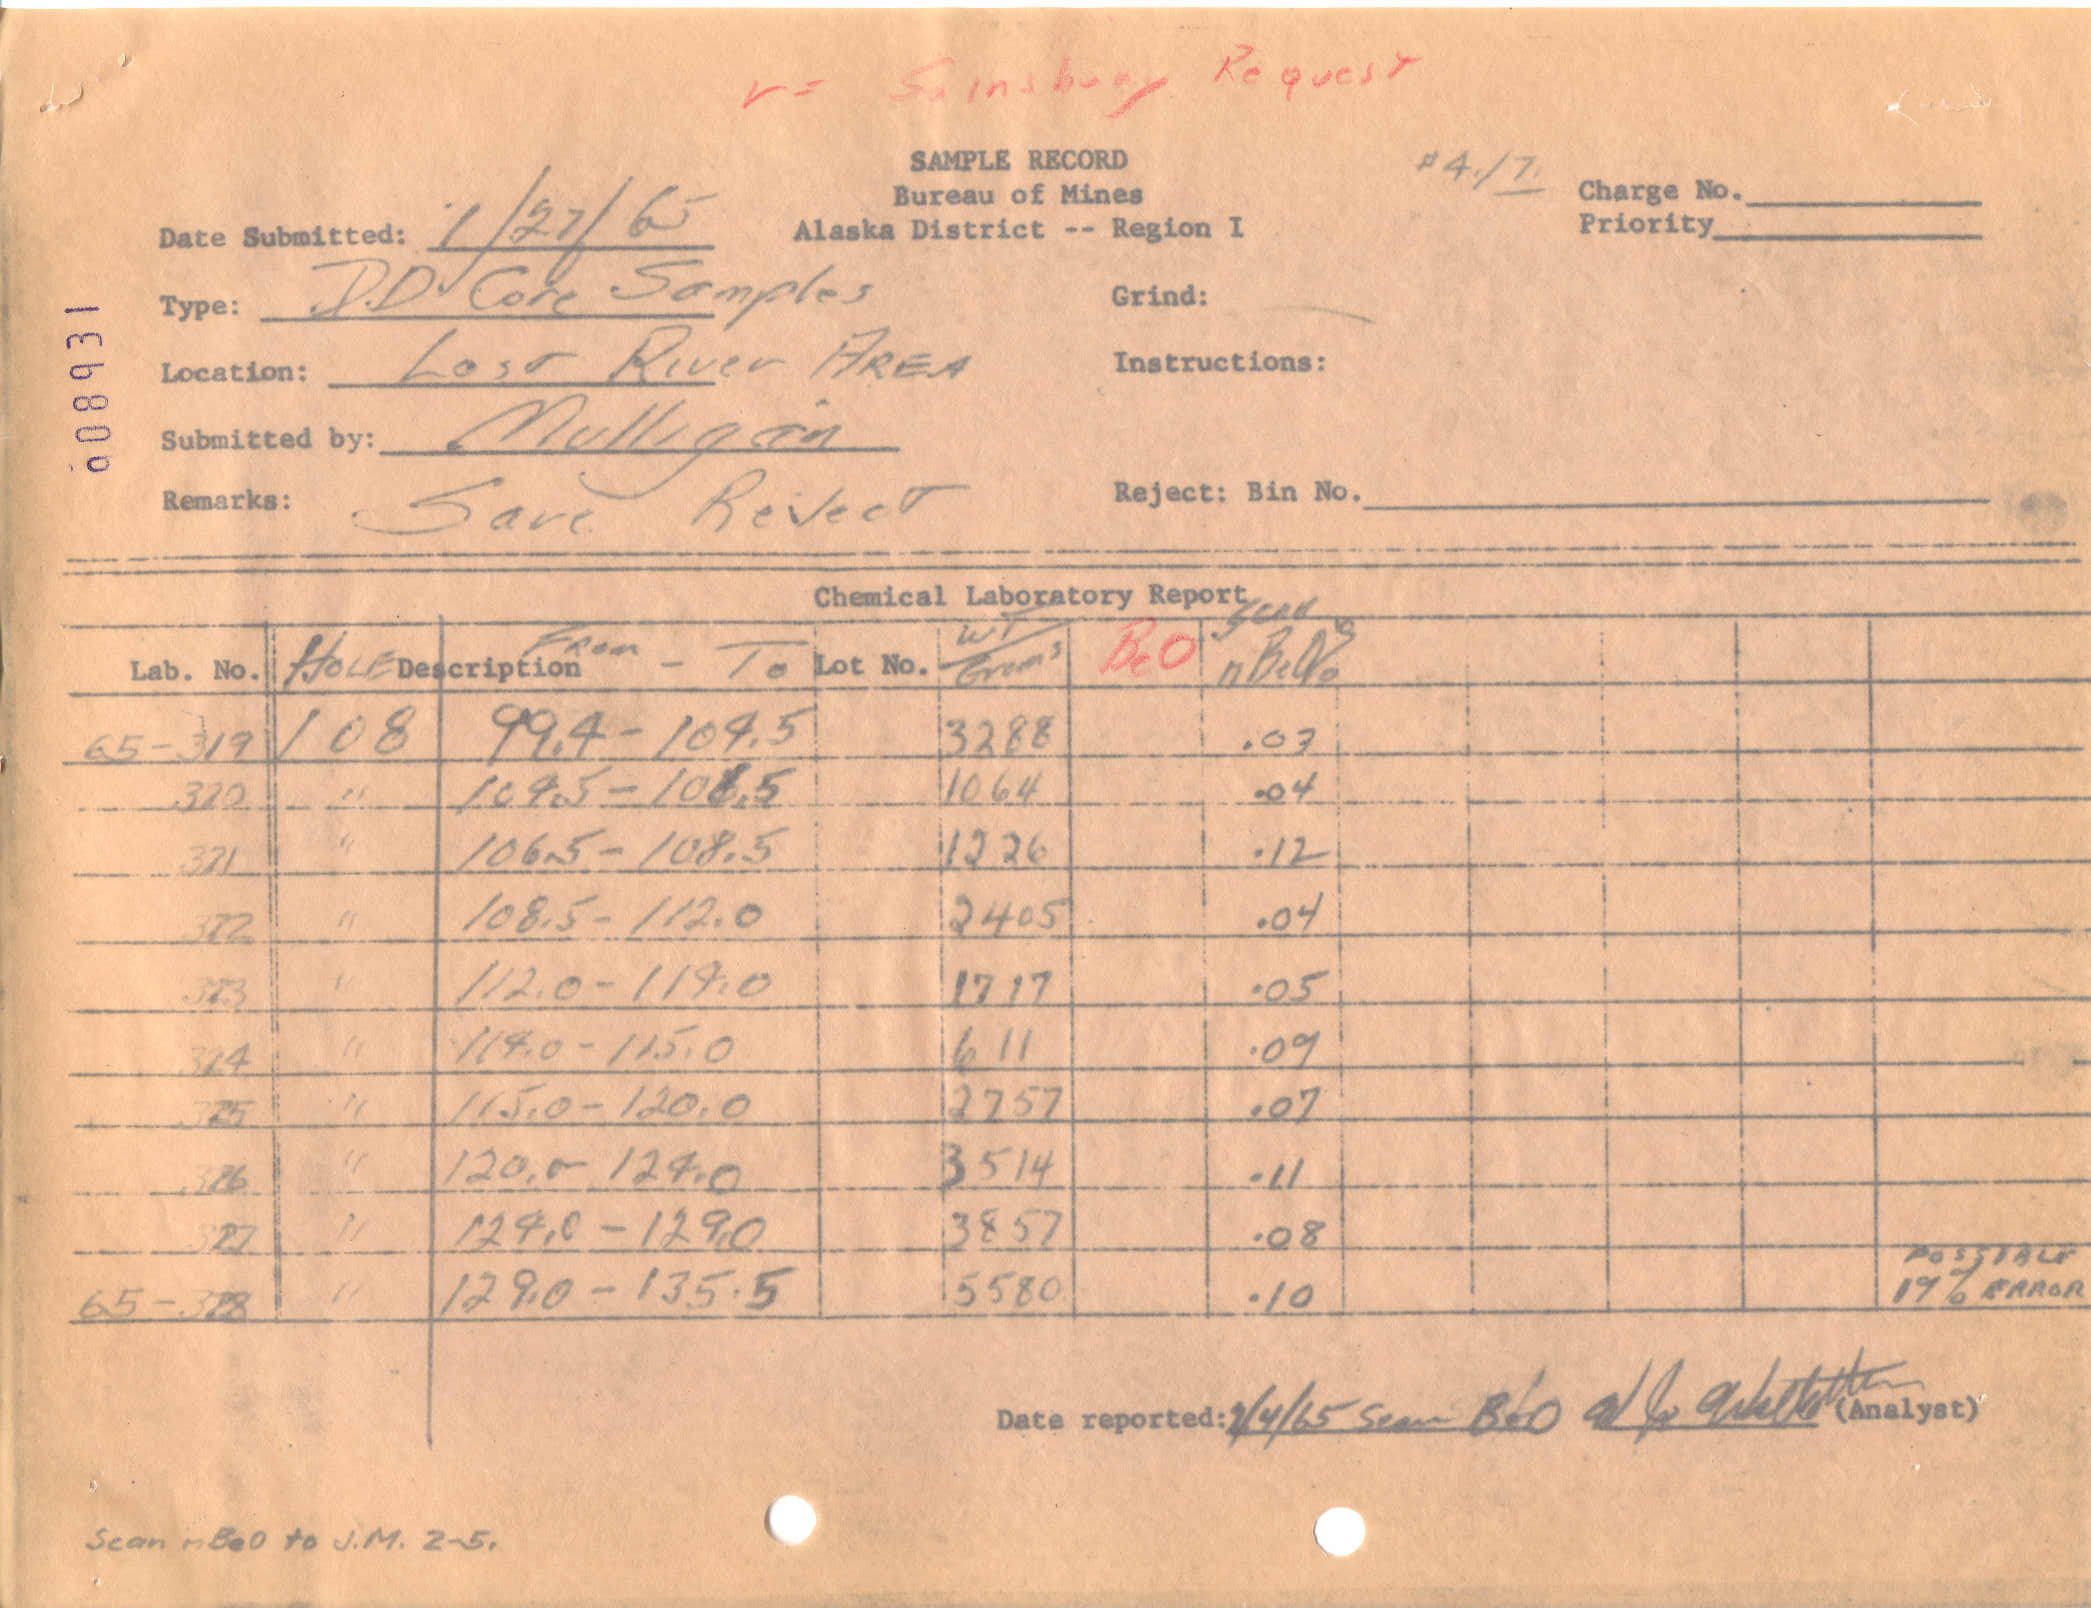 r = Sainsbury Request
SAMPLE RECORD
Bureau of Mines
Alaska District -- Region I
#4./7.
Charge No.
Priority
Date Submitted: 1/27/65
Type: D.D. Core Samples
Grind:
Location: Lost River AREA
Instructions:
Submitted by: Mulligan
Remarks: Save Reject
Reject: Bin No.
008931
Chemical Laboratory Report
Lab. No. HOLE Description From - To Lot No. WT Grams BeO Scan nBeO%
65-319 108 99.4 - 104.5 3288 .03
320 " 104.5 - 106.5 1064 .04
321 " 106.5 - 108.5 1226 .12
322 " 108.5 - 112.0 2405 .04
323 " 112.0 - 114.0 1717 .05
324 " 114.0 - 115.0 611 .09
325 " 115.0 - 120.0 2757 .07
326 " 120.0 - 124.0 3514 .11
327 " 124.0 - 129.0 3857 .08
65-328 " 129.0 - 135.5 5580 .10 POSSIBLE 19% ERROR
Date reported: 2/4/65 Scan BeO (Analyst)
Scan nBeO to J.M. 2-5.